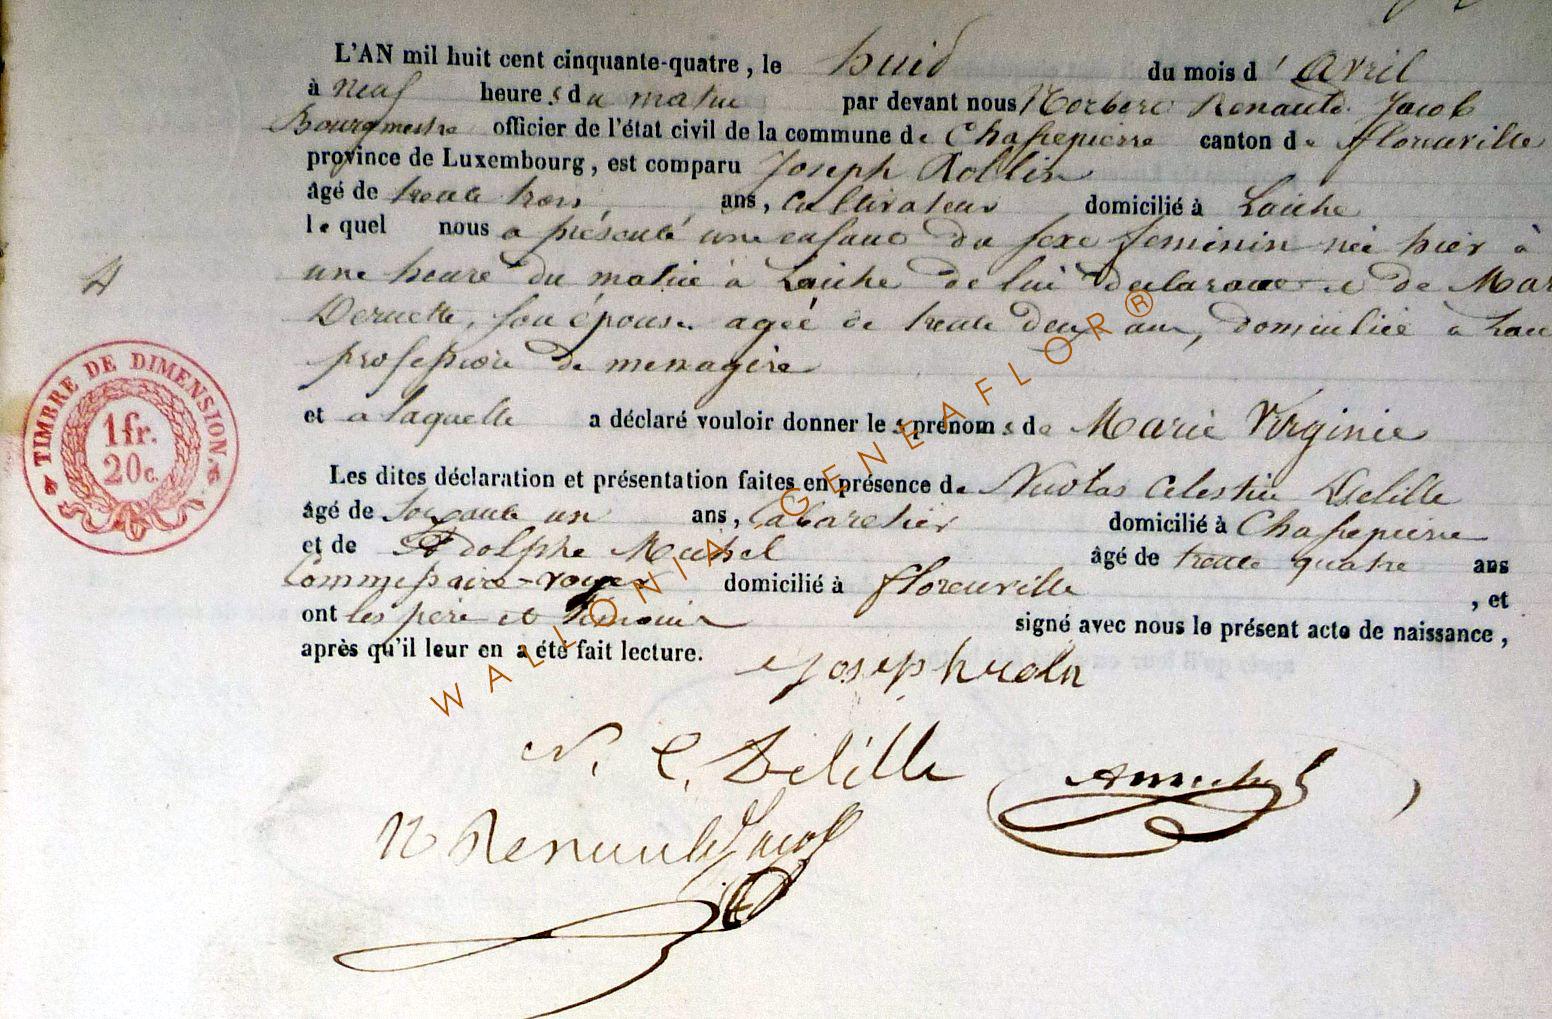 L'AN mil huit cent cinquante-quatre, le huid du mois d'Avril
à neuf heures du matin par devant nous Norbert Renauld Jacob
Bourgmestre officier de l'état civil de la commune de Chassepierre canton de florenville
province de Luxembourg, est comparu Joseph Rollin
âgé de trente trois ans, Cultivateur domicilié à Laiche
lequel nous a présenté une enfant du sexe feminin née hier à
une heure du matin à Laiche de lui declarant et de Mar
son épouse agée de trente deux ans, domiciliée à Laic
profession de menagère
et a laquelle a déclaré vouloir donner les prénoms de Marie Virginie
Les dites déclaration et présentation faites en présence de Nicolas Celestin Delille
âgé de soixante un ans, Cabaretier domicilié à Chassepierre
et de Adolphe Michel âgé de trente quatre ans
Commissaire-voyer domicilié à florenville, et
ont les père et témoins signé avec nous le présent acte de naissance,
après qu'il leur en a été fait lecture.
Joseph rolin
N. C. Delille
A Michel
N Renauld Jacob
TIMBRE DE DIMENSION.
1 fr.
20 c.
WALLONIA GENEAFLOR®